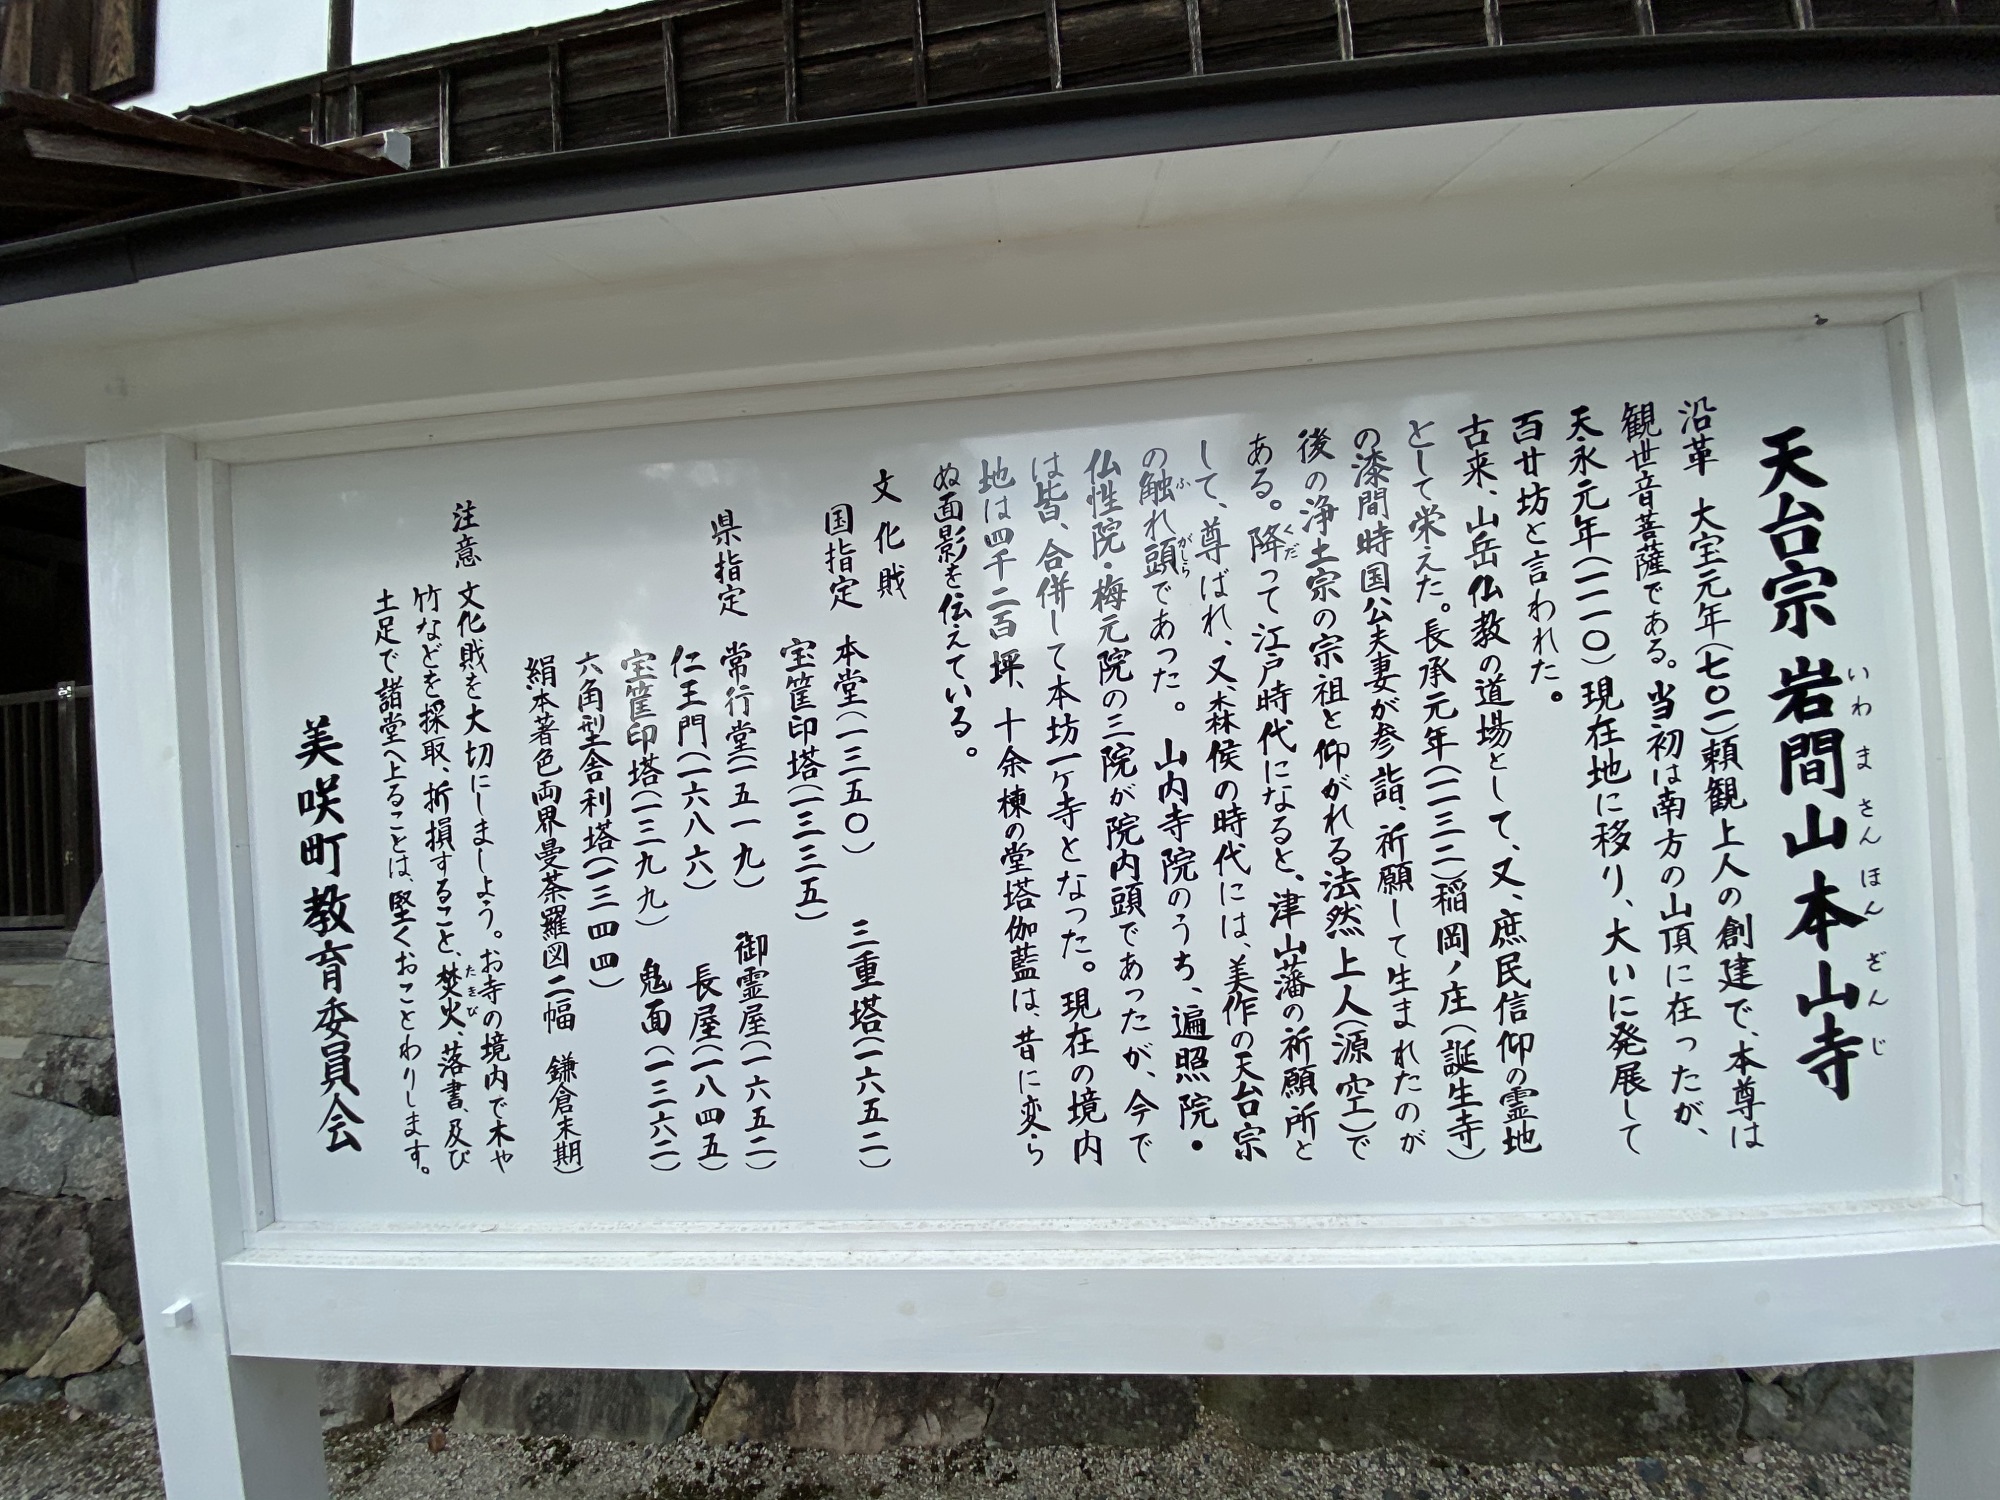 天台宗 岩間山本山寺
いわまさんほんざんじ
沿革 大宝元年(七〇一)頼観上人の創建で、本尊は
観世音菩薩である。当初は南方の山頂に在ったが、
天永元年(一一一〇)現在地に移り、大いに発展して
百廿坊と言われた。
古来、山岳仏教の道場として、又、庶民信仰の霊地
として栄えた。長承元年(一一三二)稲岡ノ庄(誕生寺)
の漆間時国公夫妻が参詣、祈願して生まれたのが
後の浄土宗の宗祖と仰がれる法然上人(源空)で
ある。降って江戸時代になると、津山藩の祈願所と
くだ
して、尊ばれ、又、森侯の時代には、美作の天台宗
の触れ頭であった。山内寺院のうち、遍照院・
ふ がしら
仏性院・梅元院の三院が院内頭であったが、今で
は皆、合併して本坊一ヶ寺となった。現在の境内
地は四千二百坪、十余棟の堂塔伽藍は、昔に変ら
ぬ面影を伝えている。
文化財
国指定 本堂(一三五〇) 三重塔(一六五二)
宝筺印塔(一三三五)
県指定 常行堂(一五一九) 御霊屋(一六五二)
仁王門(一六八六) 長屋(一八四五)
宝筺印塔(一三九九) 鬼面(一三六二)
六角型舎利塔(一三四四)
絹本著色両界曼荼羅図二幅 鎌倉末期)
注意 文化財を大切にしましよう。お寺の境内で木や
竹などを採取、折損すること、焚火、落書、及び
たきび
土足で諸堂へ上ることは、堅くおことわりします。
美咲町教育委員会